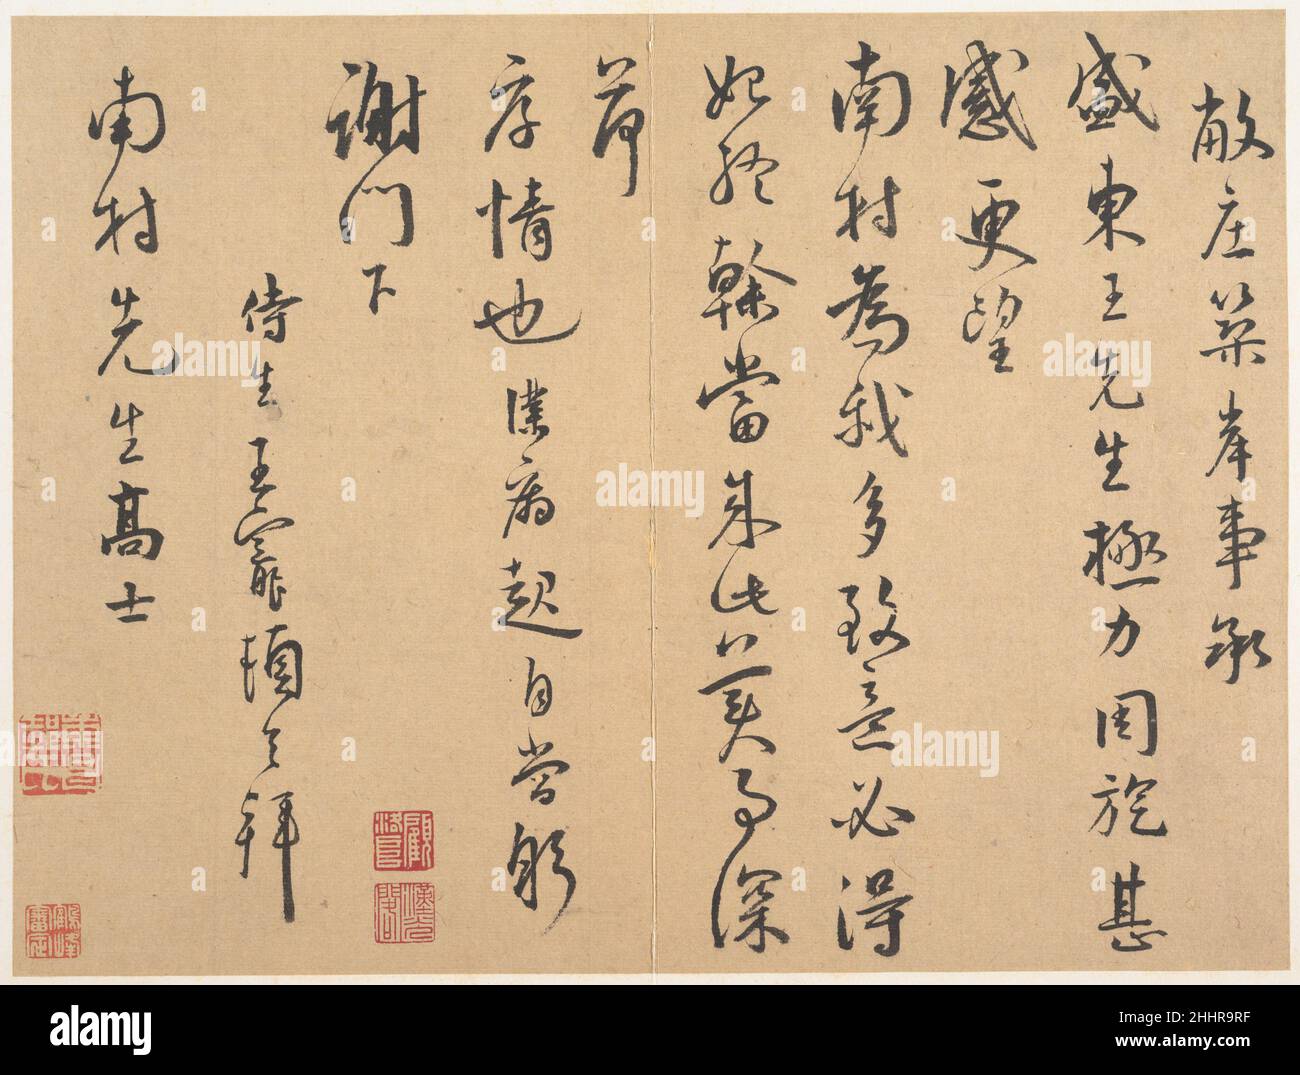 敝庄築岸事承
盛東王先生極力周旋甚
感更望
南村為我多致意必得
始終幹當成此美事深
荷
厚情也僕病起自當躬
謝門下
侍生王寵頓首拜
南村先生高士
顧洛阜
漢光閣
alamy
Image ID: 2HHR9RF
www.alamy.com